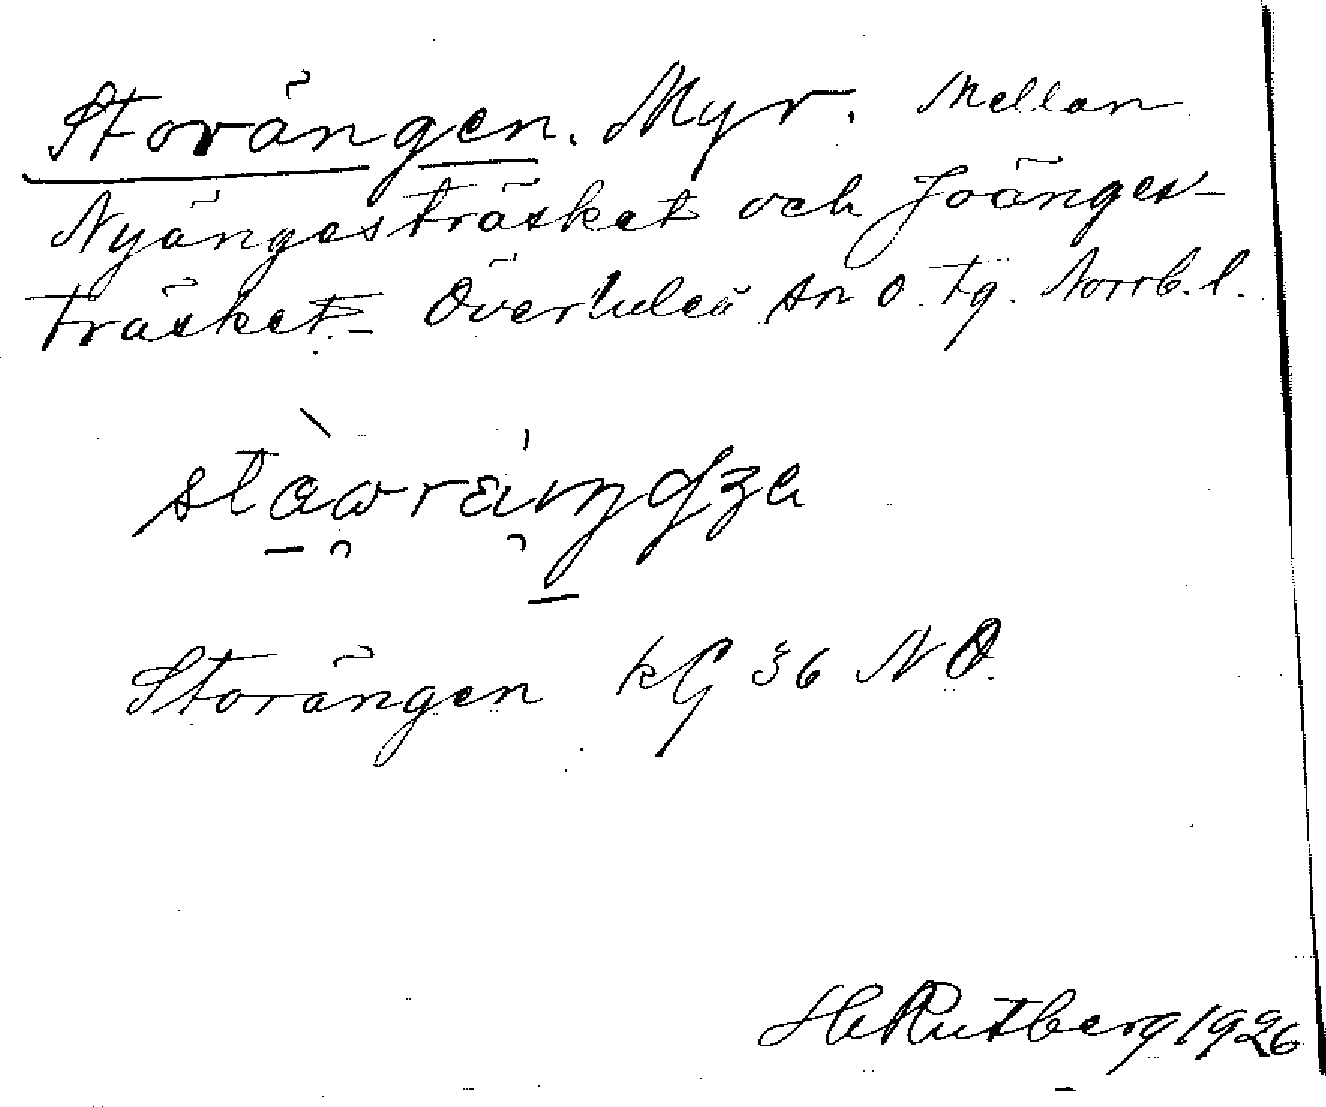 Storängen. Myr. Mellan
Nyängesträsket och Joänges-
träsket. Överluleå sn o. tg. Norrb. l.
Storängen kG 36 NO.
H. Rutberg 1926